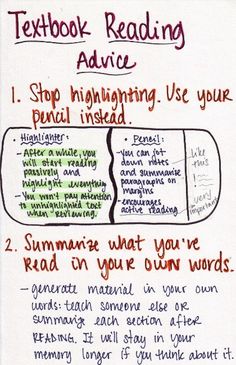 Textbook Reading
Advice
1. Stop highlighting. Use your
pencil instead.
Highlighter:
- After a while, you
will start reading
passively and
highlight everything
- You won't pay attention
to unhighlighted text
when reviewing.
Pencil:
- You can jot
down notes
and summarise
paragraphs on
margins
- encourages
active reading
like
this
very
important
2. Summarize what you've
Read in your own words.
- generate material in your own
words: teach someone else or
summarize each section after
READING. It will stay in your
memory longer if you think about it.